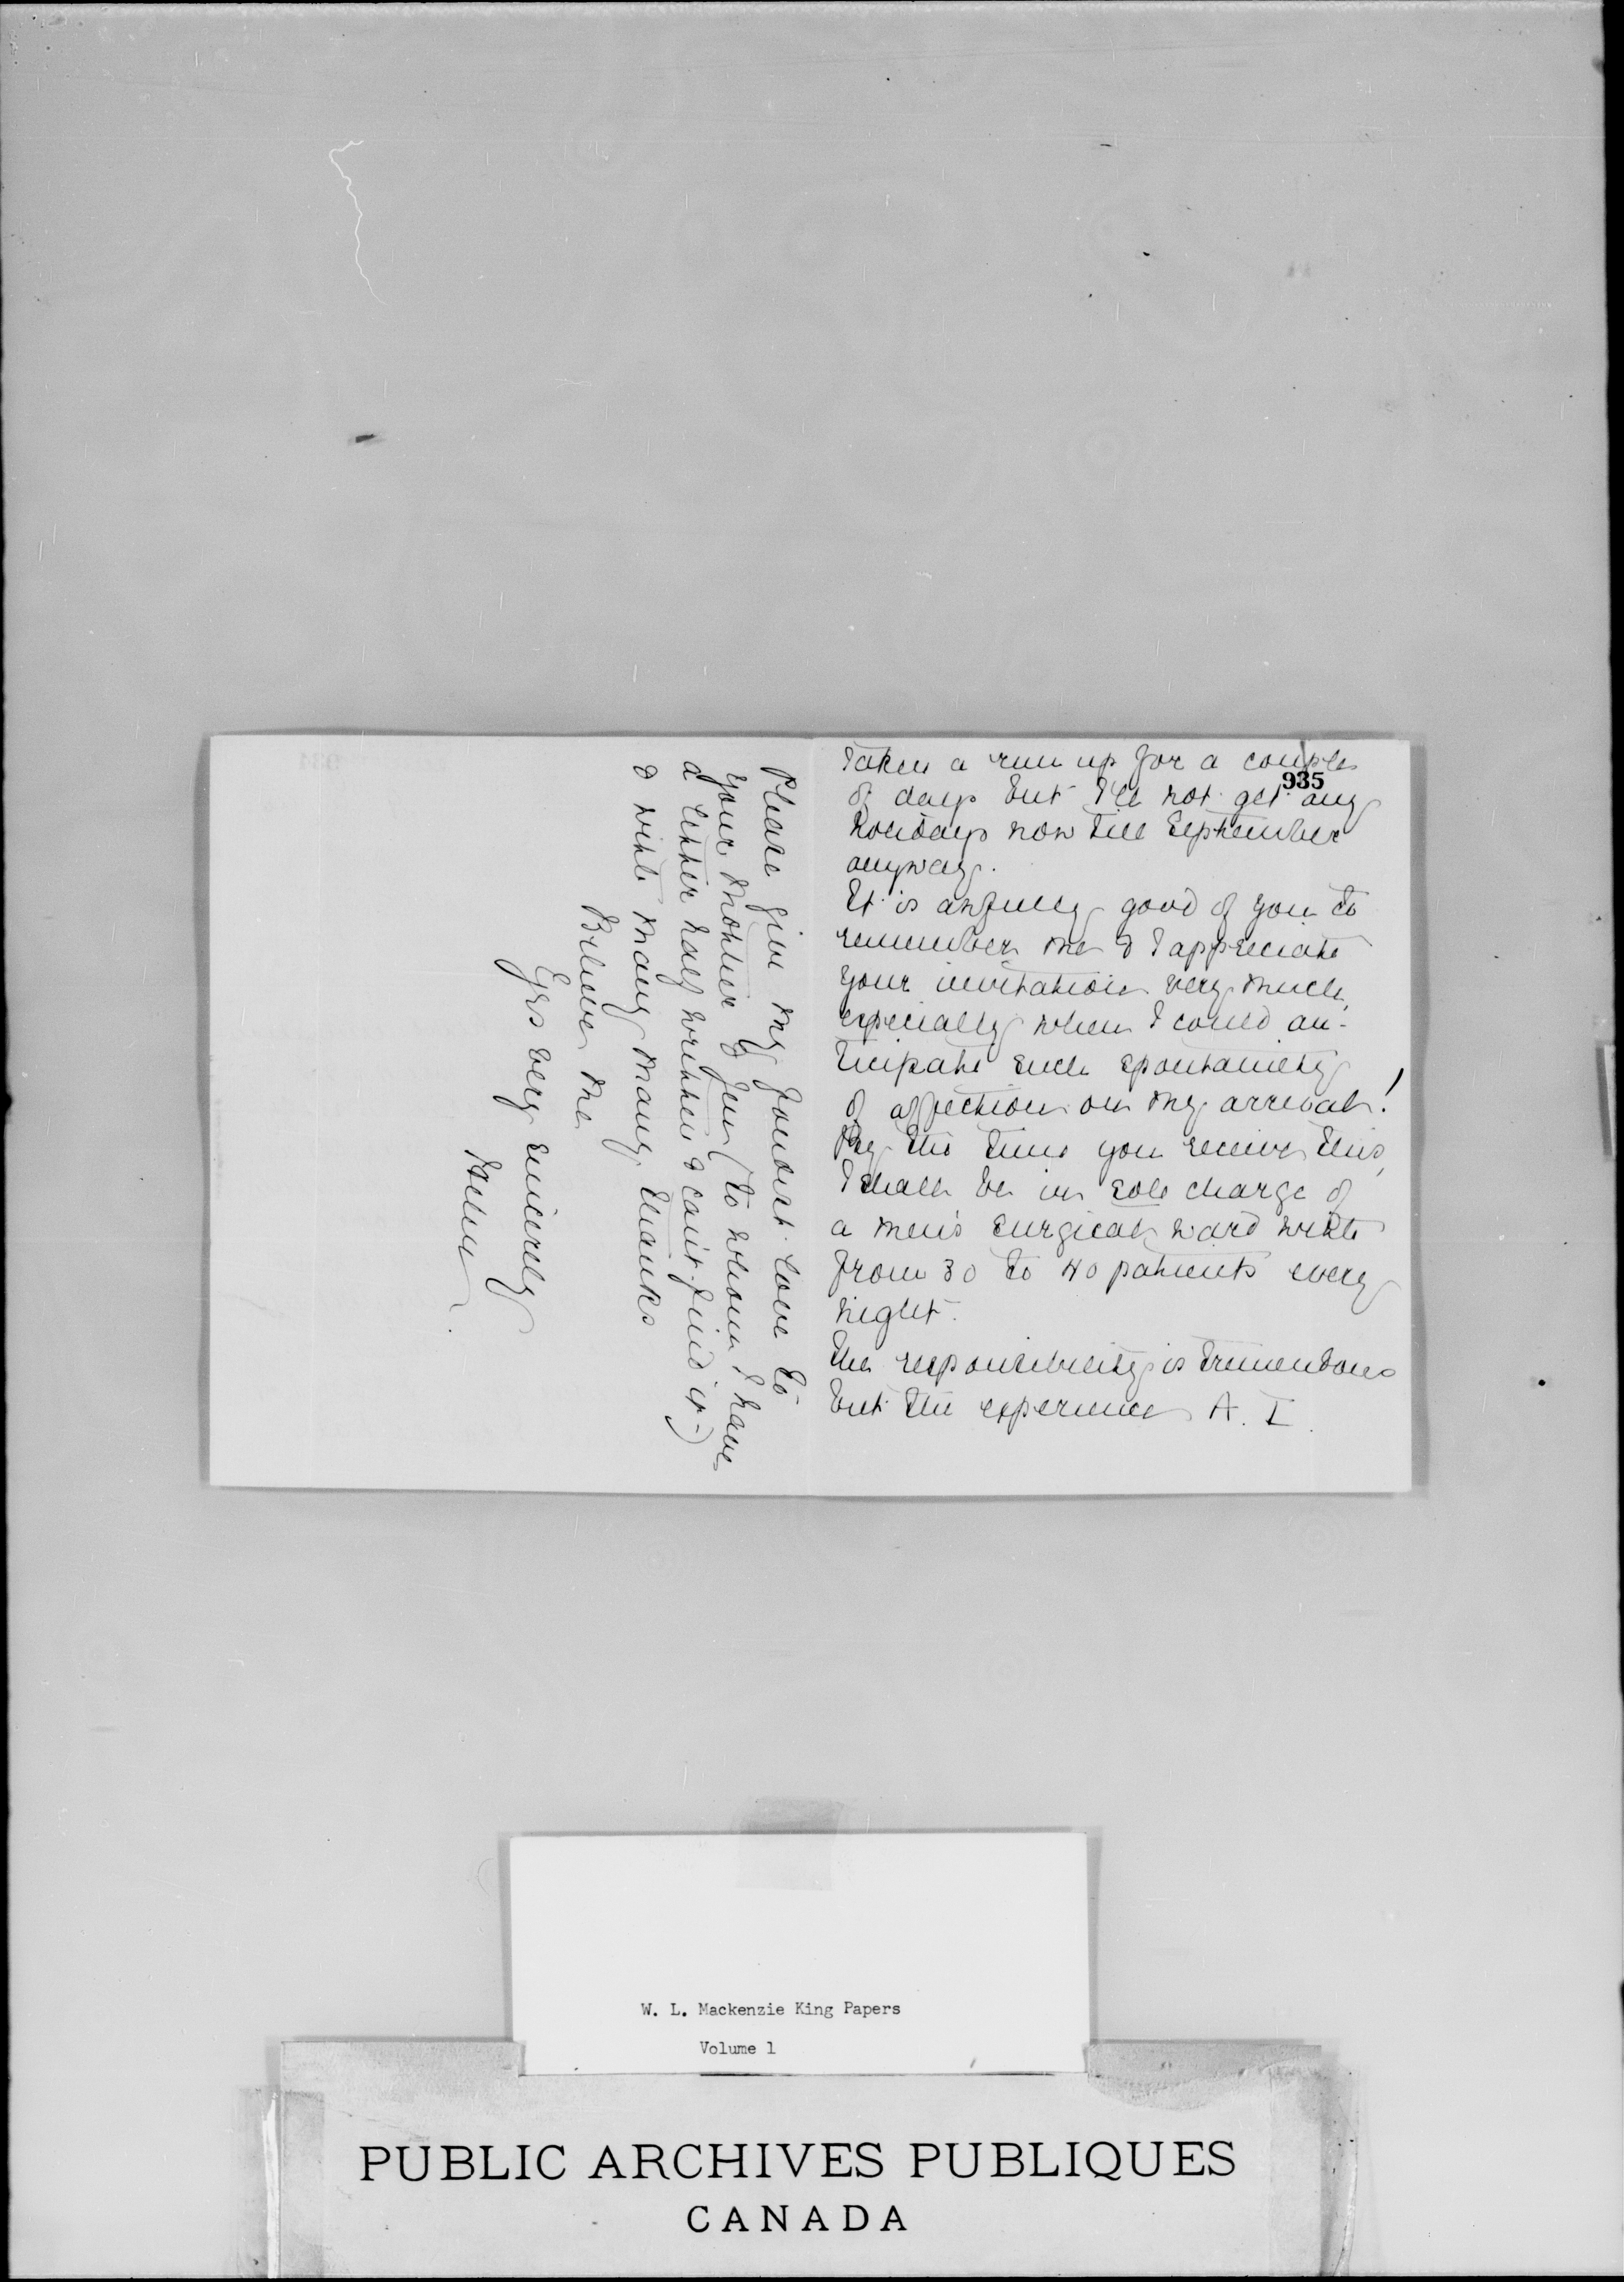 935
taken a run up for a couple
of days but I'll not get any
holidays now till September
anyway.
It is awfully good of you to
remember me & I appreciate
your invitation very much,
especially when I could an-
ticipate such spontaniety
of affection on my arrival!
By the time you receive this,
I shall be in sole charge of
a men's surgical ward with
from 30 to 40 patients every
night.
The responsibility is tremendous
but the experience A. I.
Please give my fondest love to
your Mother & Jen (to whom I have
a letter half written & can't find it-)
& with many many thanks
Believe me
Yrs very sincerely
W. L. Mackenzie King Papers
Volume 1
PUBLIC ARCHIVES PUBLIQUES
CANADA